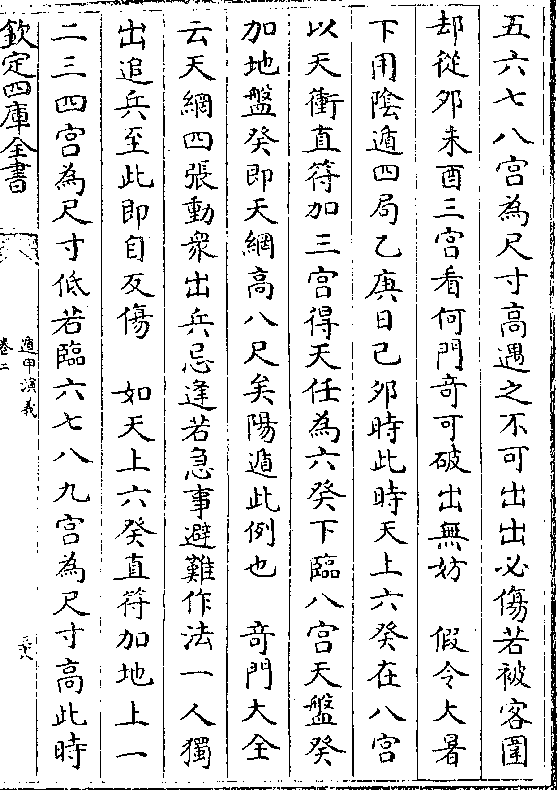 五六七八宫為尺寸高遇之不可出出必傷若被客圍
却從夘未酉三宫看何門竒可破出無妨　假令大暑
下用陰遁四局乙庚日己夘時此時天上六癸在八宫
以天衝直符加三宫得天任為六癸下臨八宫天盤癸
加地盤癸即天網高八尺矣陽遁此例也　竒門大全
云天網四張動衆出兵忌逢若急事避難作法一人獨
出追兵至此即自反傷　如天上六癸直符加地上一
二三四宫為尺寸低若臨六七八九宫為尺寸高此時
欽定四庫全書
遁甲演義
卷二